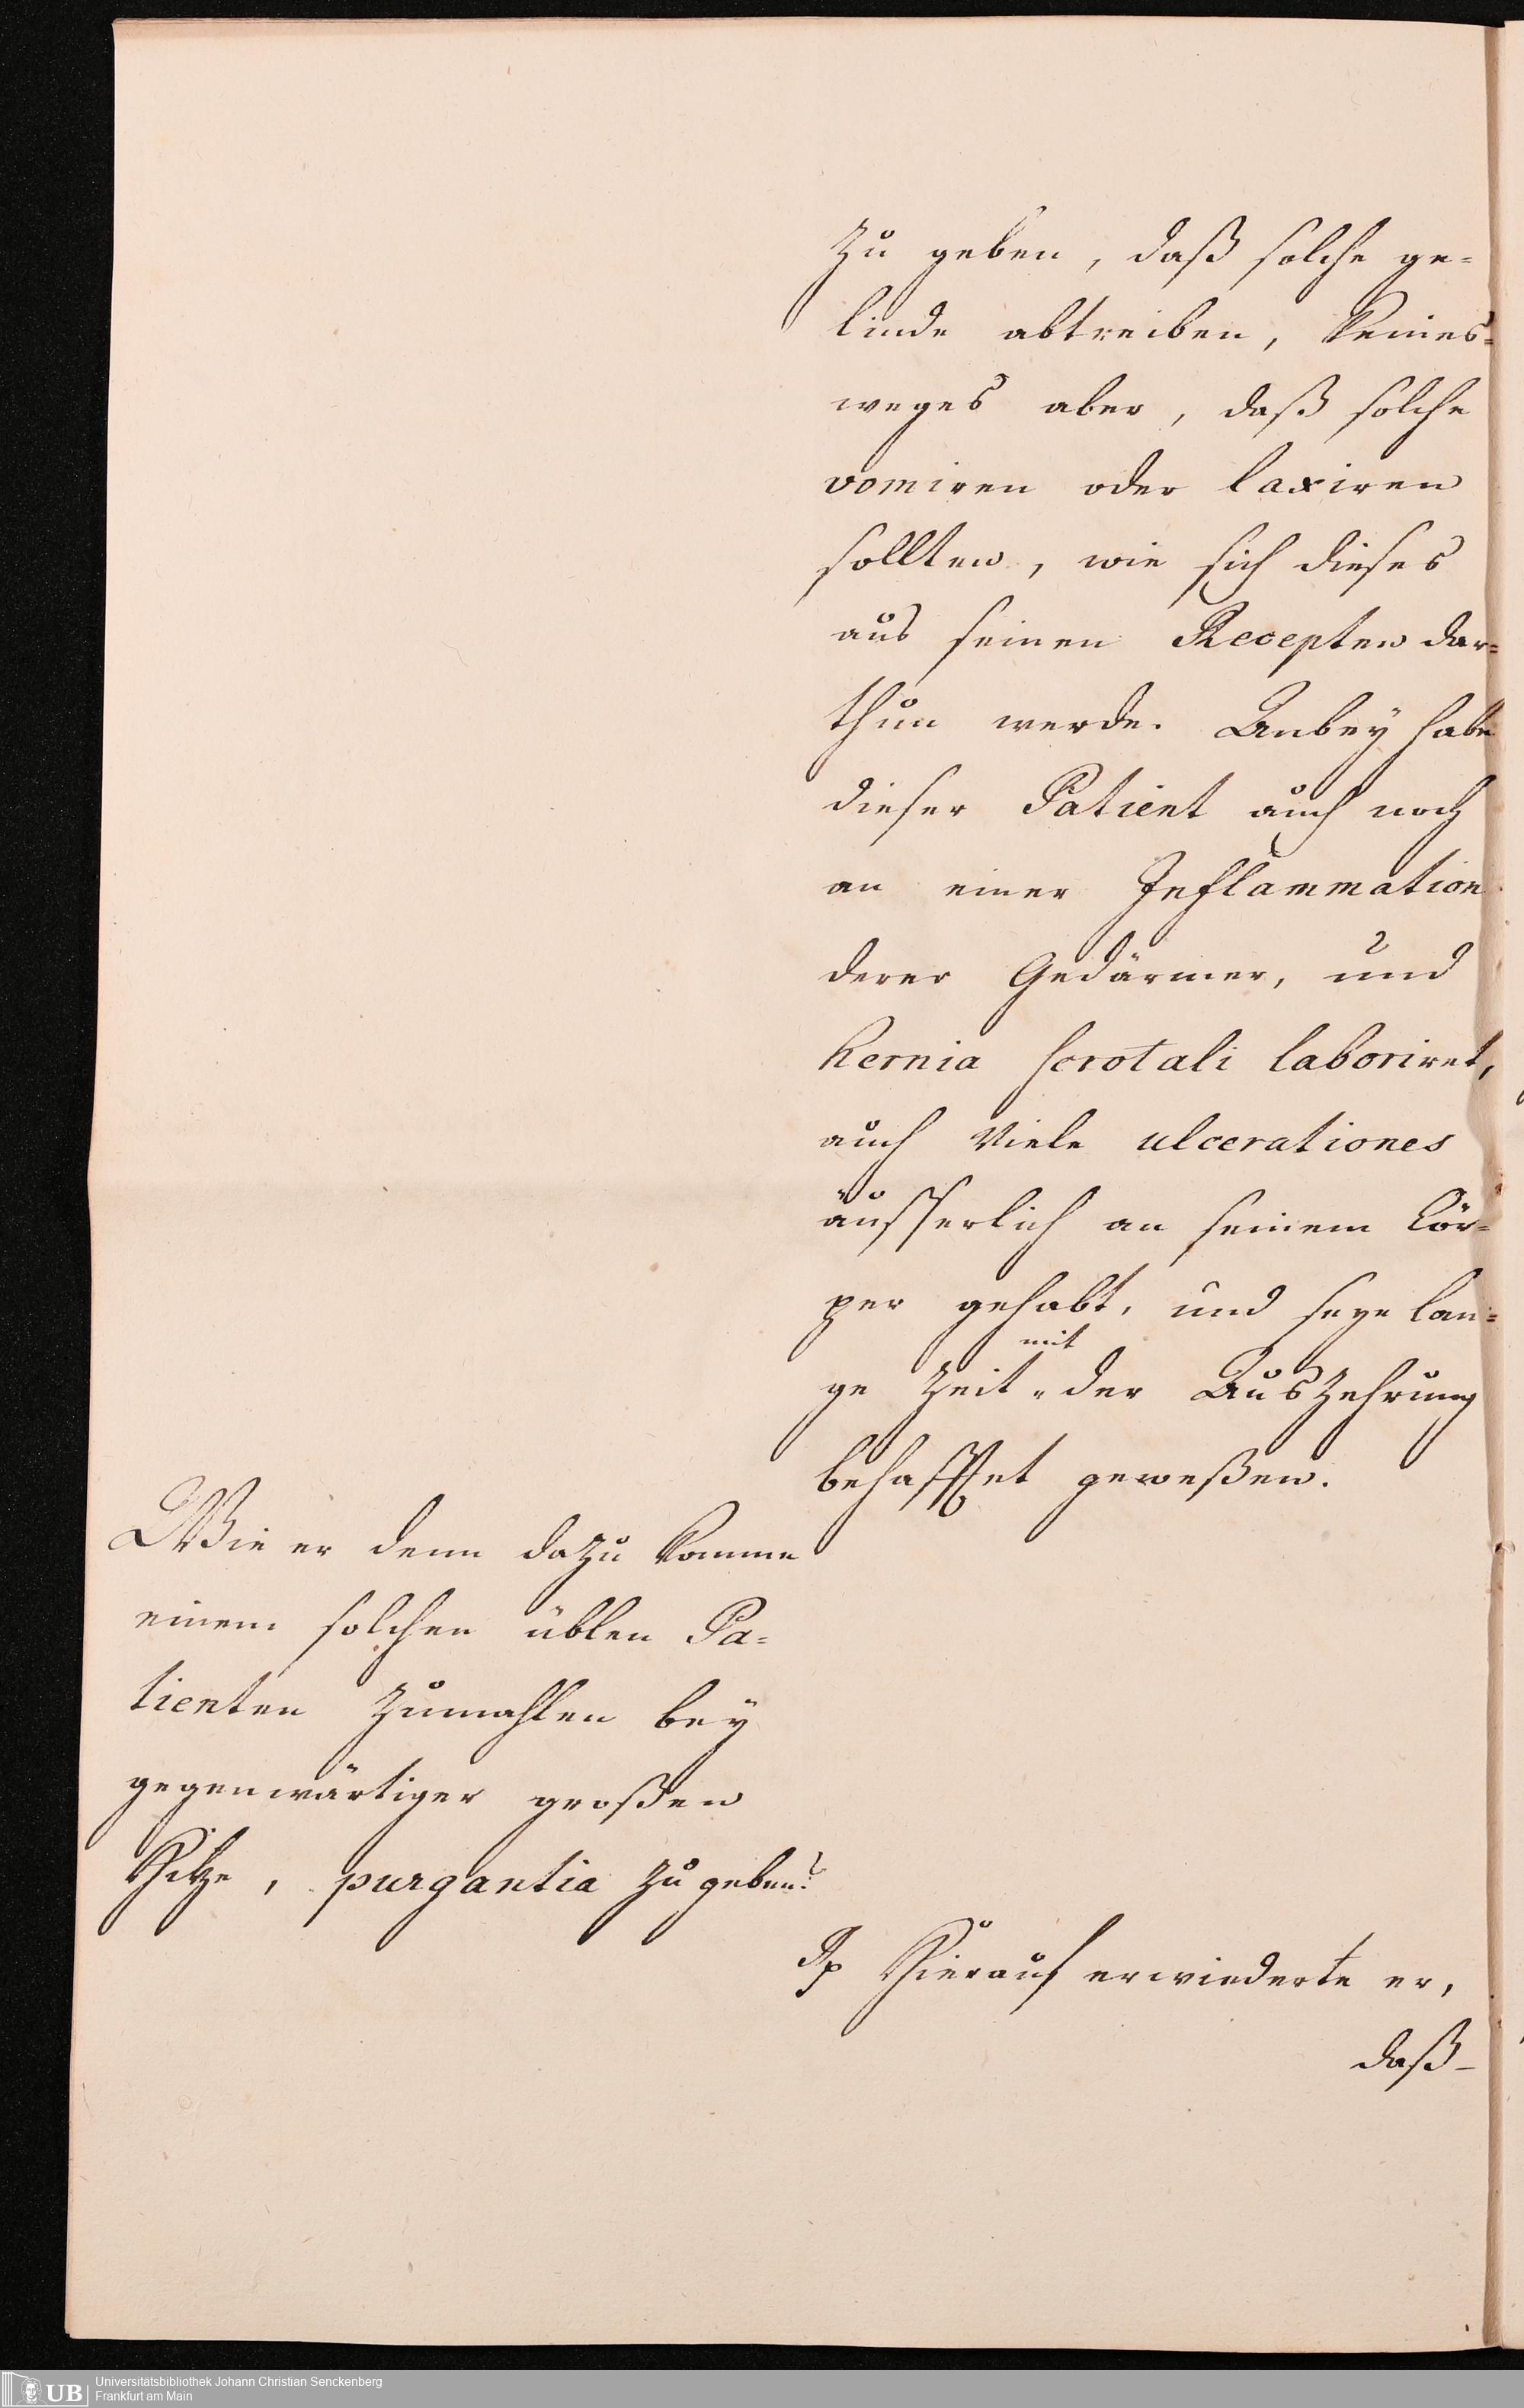 Zu geben, daß solche ge=
linde abtreiben, keines=
weges aber, daß solche
vomiren oder laxiren
sollten, wie sich dieses
aus seinen Recepten dar=
thun werde. Anbey habe
dieser Patient auch noch
an einer Inflammation
derer Gedärmer, und
hernia scrotali laboriret,
auch viele ulcerationes
äusserlich an seinem Cör=
per gehabt, und seye lan=
ge Zeit mit der AusZehrung
behafftet geweßen.
Wie er denn dazu komme
einem solchen üblen Pa=
tienten Zumahlen bey
gegenwärtiger großen
Hitze, purgantia zu geben?
Hierauf erwiederte er,
daß
UB
Universitätsbibliothek Johann Christian Senckenberg
Frankfurt am Main